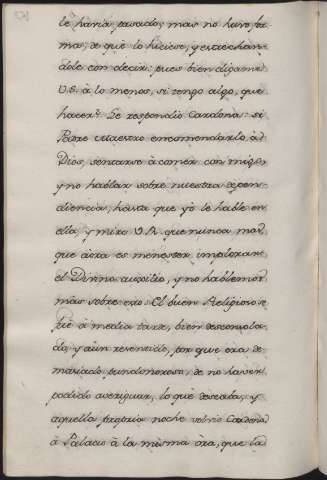 le havia pasado; mas no huvo for
mas, de que lo hiciese, y estrechan
dole con decir: pues bien digame
V.S. à lo menos, si tengo algo, que
hacer? Le respondio Cardona: si
Padre Maestro encomendarlo à
Dios, sentarse à comer con migo,
y no hablar sobre nuestra depen-
diencia, hasta que yo le hable en
ella, y mire V.R. que nunca mas,
que aora es menester implorar
el Divino auxilio, y no hablemos
màs sobre esto. El buen Religioso se
fuè à media tarde, bien desconsola-
do, y aùn resentido, por que èra de
masiado pundonoroso, de no haver
podido averiguar, lo que deseaba; y
aquella propria noche volviò Cardona
à Palacio à la misma òra, que la